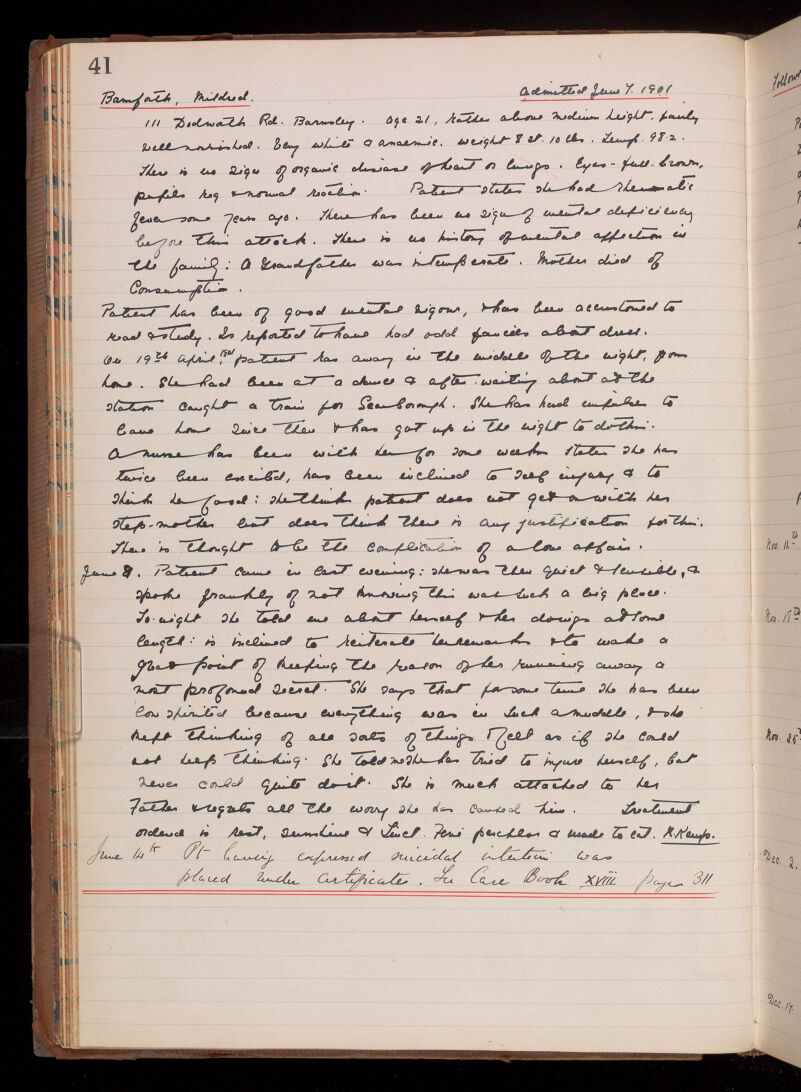 41
Bamforth, Mildred. Admitted June 7. 1901
111 Dodwath Rd. Barnsley. Age 21, Rather above medium height, fairly
well nourished. Very white & anaemic. weight 8 st. 10 lbs. Temp. 98.2.
There is no sign of organic disease of heart or lungs. Eyes - full. brown,
pupils reg & normal reaction. Patient states she had rheumatic
fever some years ago. There has been no sign of mental deficiency
before this attack. There is no history of mental affection in
the family: A Grandfather was intemperate. Mother died of
Consumption.
Patient has been of good mental vigour, & has been accustomed to
read & study. Is reported to have had odd fancies about dress.
On 19th April, 1901 patient ran away in the middle of the night, from
home. She had been at a dance & after waiting about at the
station caught a train for Scarborough. She has had impulses to
leave home since then & has got up in the night to do this.
A nurse has been with her for some weeks states she has
twice been excited, has been inclined to self injury & to
think her food: she thinks patient does not get on with her
step-mother but does think there is any justification for this.
There is thought to be the complication of a love affair.
June 8. Patient came in last evening: she was then quiet & sensible, &
spoke frankly of not knowing this was such a big place.
To-night she told me about herself & her doings at some
length: is inclined to reiterate her remarks & to make a
great point of keeping the reason of her running away a
most profound secret. She says that for some time she has been
low spirited because everything was in such a muddle, & she
kept thinking of all sorts of things & felt as if she could
not keep thinking. She told me she has tried to injure herself, but
never could quite do it. She is much attached to her
Father & regrets all the worry she has caused him. Treatment
ordered is rest, sunshine & Tinct. Ferri perchlor & made to eat. N. Kemp.
June 14th Pt having expressed suicidal intention was
placed under certificates. See Case Book XVIII page 311
Follows
Nov. 11th
Nov. 18th
Nov. 25th
Dec. 2.
Dec. 17.